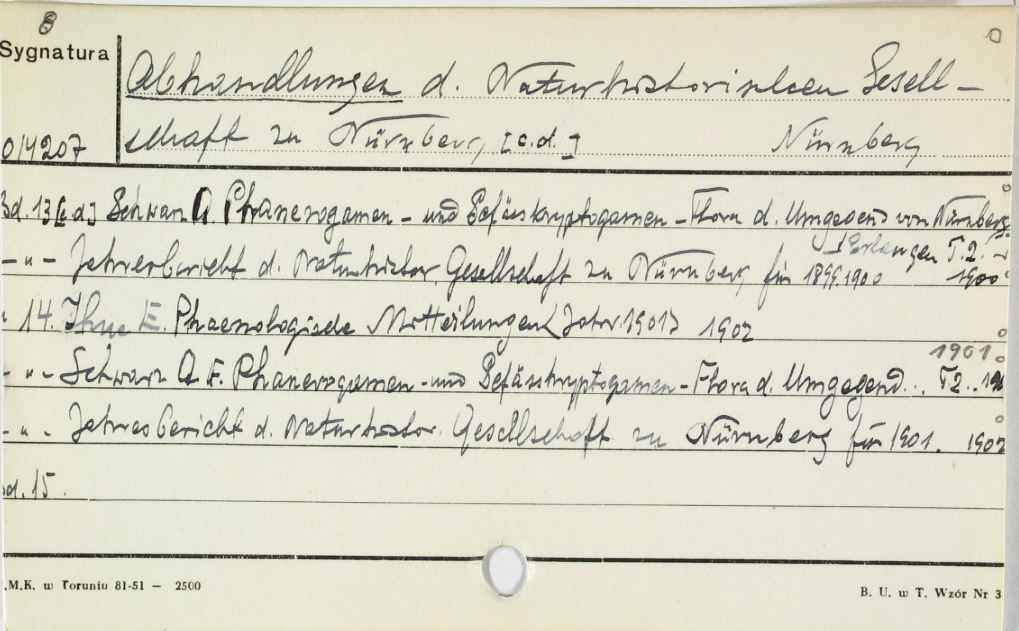 8
Sygnatura
Abhandlungen d. Naturhistorischen Gesell-
schaft zu Nürnberg [c.d.] Nürnberg
0/4207
Bd. 13 [c.d.] Schwarz A. Phanerogamen- und Gefässkryptogamen-Flora d. Umgegend von Nürnberg
Erlangen T.2.
-"- Jahresbericht d. Naturhistor. Gesellschaft zu Nürnberg für 1899.1900 1900
" 14. Ihne E. Phaenologische Mitteilungen (Jahr 1901) 1902
1901
-"- Schwarz A. F. Phanerogamen- und Gefässkryptogamen-Flora d. Umgegend... T2..
-"- Jahresbericht d. Naturhistor. Gesellschaft zu Nürnberg für 1901. 1902
Bd. 15.
.M.K. w Toruniu 81-51 — 2500
B. U. w T. Wzór Nr 3